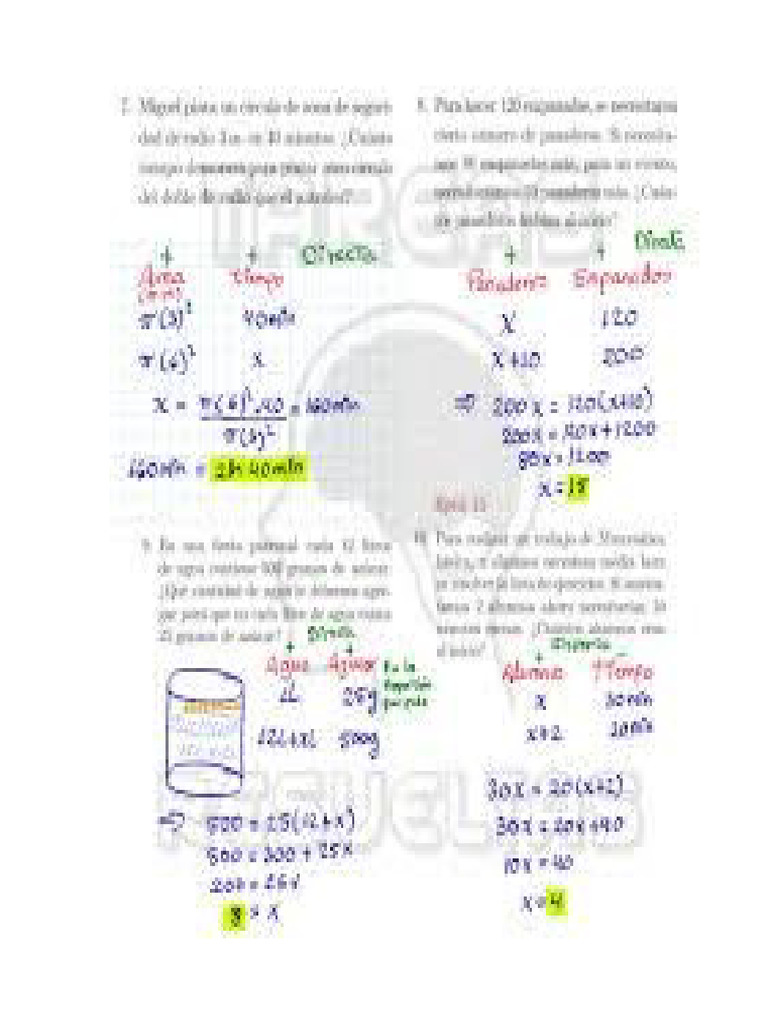 7. Miguel pinta un círculo de zona de seguri-
dad de radio 3 m en 40 minutos. ¿Cuánto
tiempo demorará para pintar otro círculo
del doble de radio que el anterior?
+ + Directa
Área Tiempo
(m²)
π(3)² 40min
π(6)² x
x = π(6)².40 = 160min
π(3)²
160min = 2h 40min
8. Para hacer 120 empanadas, se necesitan
cierto número de panaderos. Si necesita-
mos empanadas más, para un evento,
panaderos más. ¿Cuán-
tos panaderos habían al inicio?
+ + Directa
Panaderos Empanadas
x 120
x+10 200
⇒ 200x = 120(x+10)
200x = 120x + 1200
80x = 1200
x = 15
9. En una cada 12 litros
de agua contiene 500 gramos de azúcar.
¿Qué cantidad de agua se deberá agre-
gar para que en cada litro de agua
25 gramos de azúcar? Directa
+ +
Agua Azúcar En la
que pide
1L 25g
12L+xL 500g
⇒ 500 = 25(12+x)
500 = 300 + 25x
200 = 25x
8 = x
10. Para realizar un trabajo de Matemática
básica, alumnos necesitan media hora
lista de ejercicios. Si
2 alumnos ahora necesitarían 10
minutos menos. ¿Cuántos alumnos eran
al inicio?
+ Inversa -
Alumnos Tiempo
x 30min
x+2 20min
30x = 20(x+2)
30x = 20x+40
10x = 40
x = 4